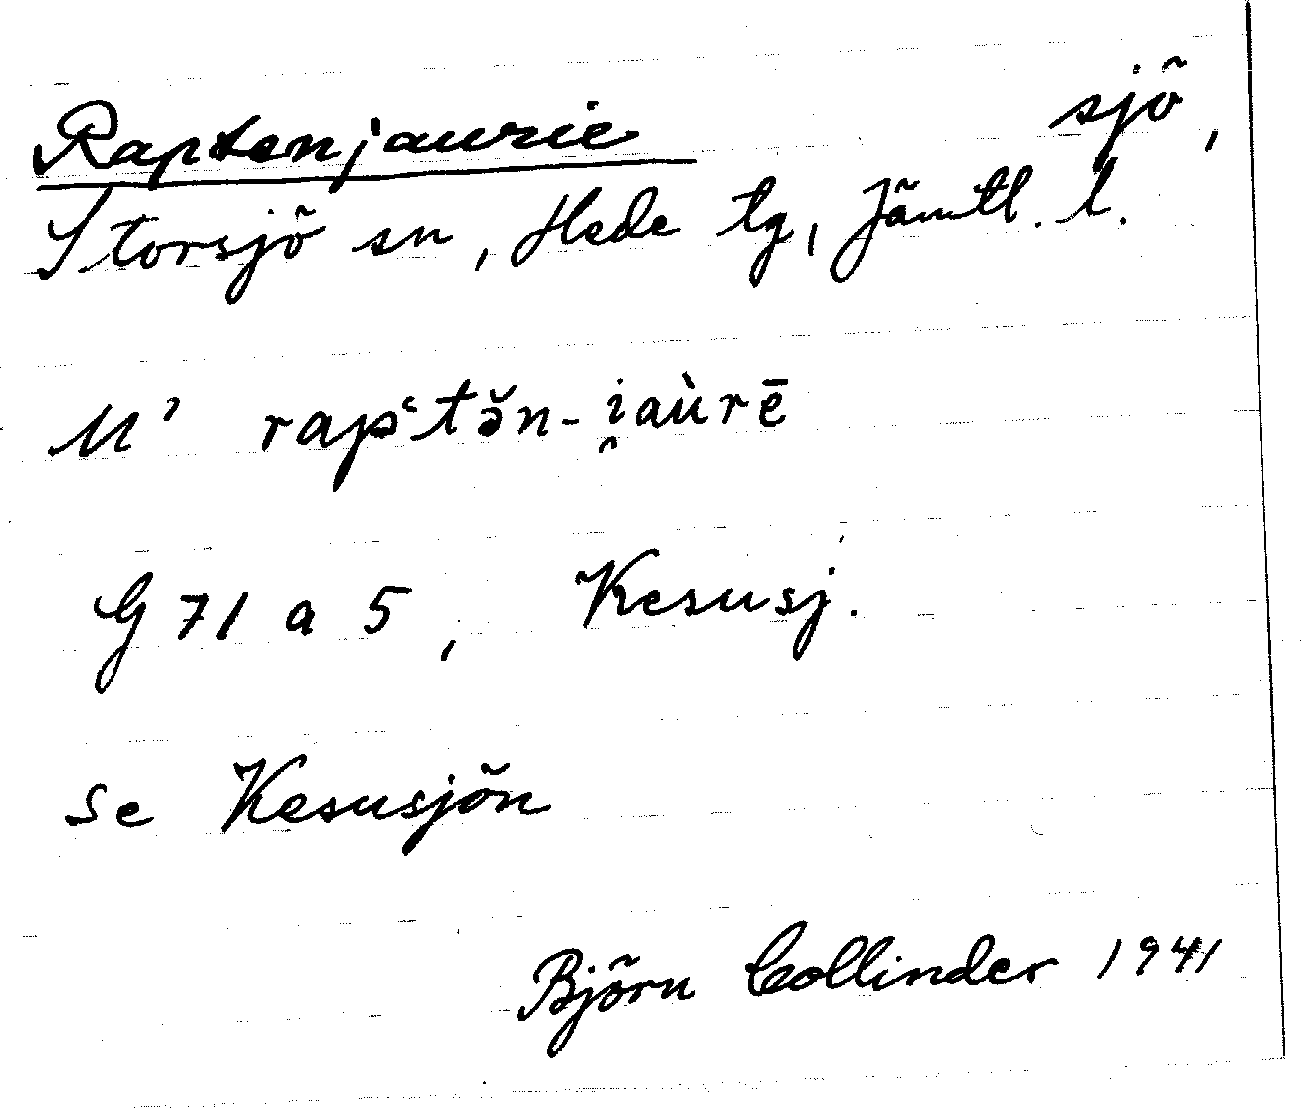 Raptenjaurie sjö,
Storsjö sn, Hede tg, Jämtl. l.
M' rapʿtə̆n-i̯aùrē
G 71 a 5, Kesusj.
se Kesusjön
Björn Collinder 1941